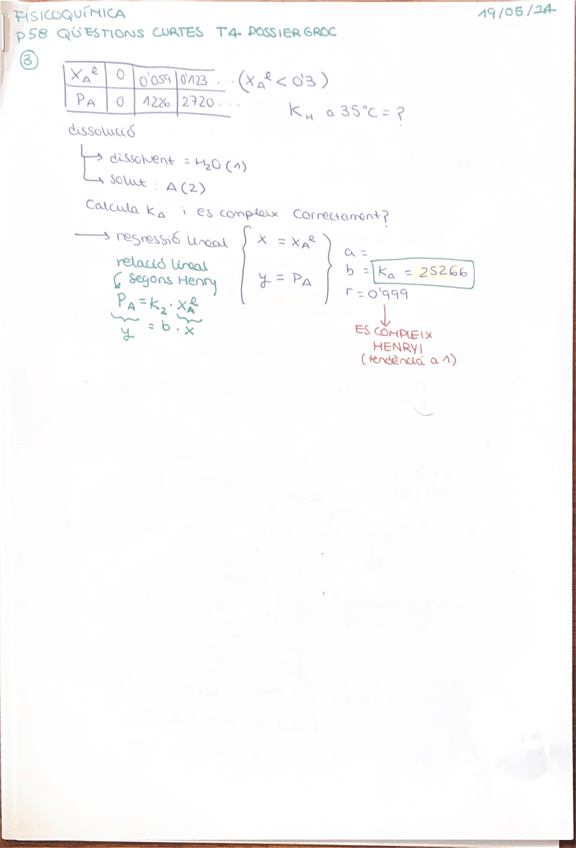 FISICOQUÍMICA
19/05/24
P58 QÜESTIONS CURTES T4 DOSSIER GROC
③
X_A^l | 0 | 0'059 | 0'123 ... (X_A^l < 0'3)
P_A | 0 | 1226 | 2720 ...
K_H a 35°C = ?
dissolució
→ dissolvent = H₂O (1)
→ solut : A (2)
Calcula K_A i es compleix correctament?
→ regressió lineal { x = X_A^l
y = P_A }
a =
b = K_A = 25266
r = 0'999
relació lineal
segons Henry
P_A = K_2 · X_A^l
y = b · x
ES COMPLEIX
HENRY!
(tendència a 1)